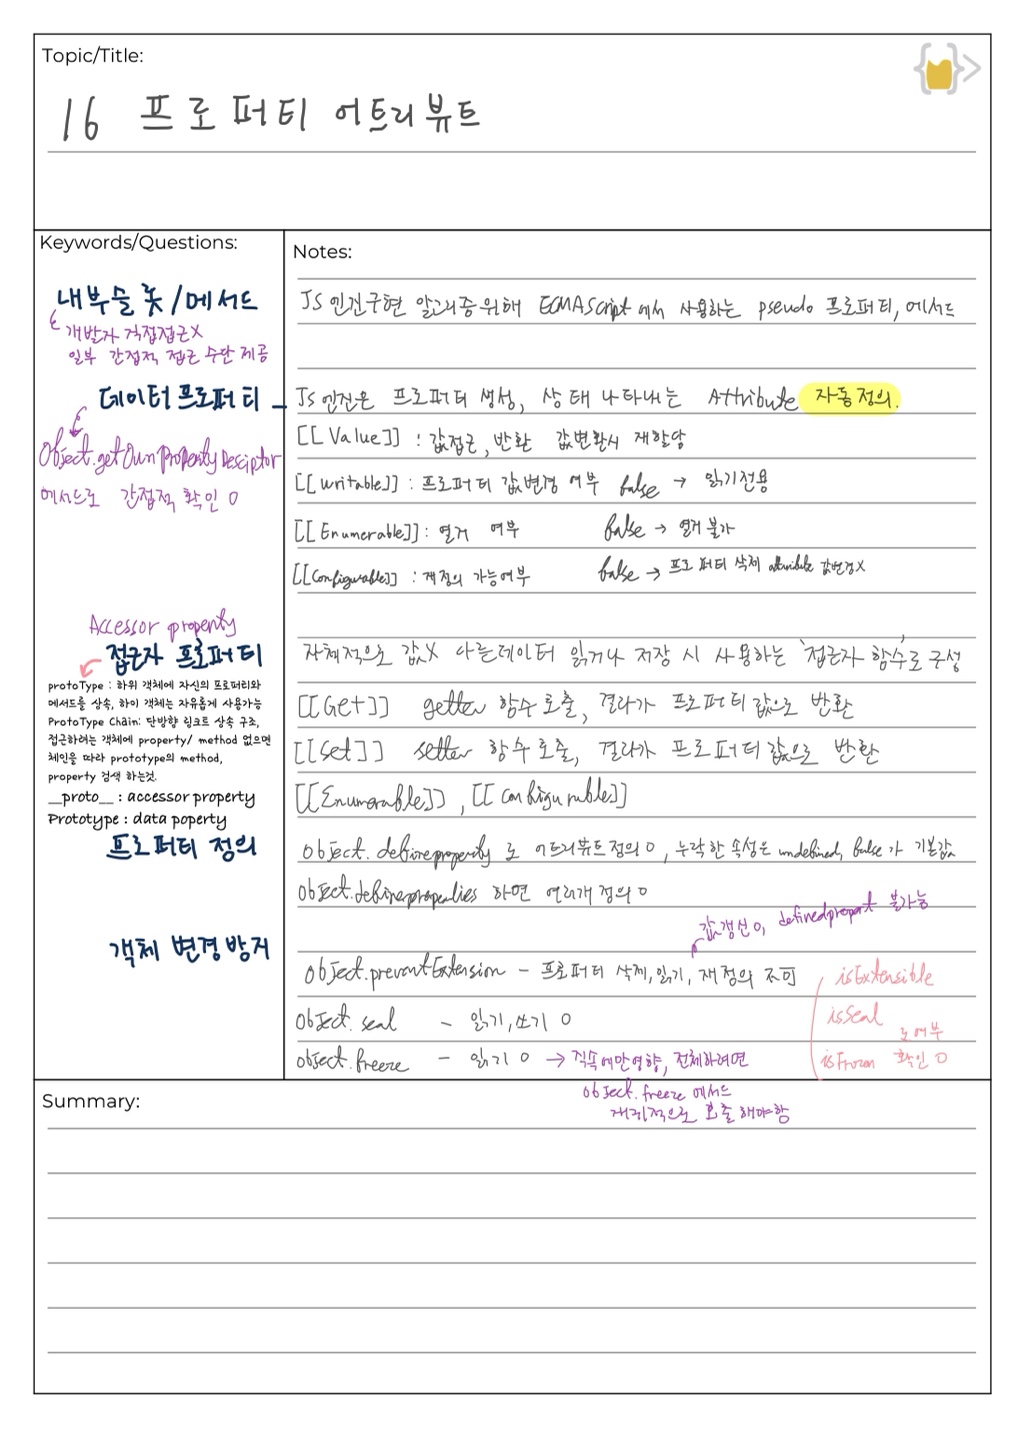 Topic/Title:
16 프로퍼티 어트리뷰트
Keywords/Questions:
내부슬롯/메서드
개발자 직접접근X
일부 간접적 접근 수단 제공
데이터 프로퍼티 -
Object.getOwnPropertyDesciptor
메서드로 간접적 확인 O
Accessor property
접근자 프로퍼티
protoType : 하위 객체에 자신의 프로퍼리와
메서드를 상속, 하이 객체는 자유롭게 사용가능
ProtoType Chain: 단방향 링크트 상속 구조,
접근하려는 객체에 property/ method 없으면
체인을 따라 prototype의 method,
property 검색 하는것.
__proto__ : accessor property
Prototype : data poperty
프로퍼티 정의
객체 변경방지
Notes:
JS 엔진구현 알고리즘 위해 ECMAScript에서 사용하는 pseudo 프로퍼티, 메서드
Js 엔진은 프로퍼티 생성, 상태 나타내는 Attribute 자동정의.
[[Value]] : 값접근, 반환 값변환시 재할당
[[writable]] : 프로퍼티 값변경 여부 false → 읽기전용
[[Enumerable]] : 열거 여부 false → 열거 불가
[[Configurable]] : 재정의 가능여부 false → 프로퍼티 삭제 attribute 값변경X
자체적으로 값X 다른데이터 읽거나 저장 시 사용하는 '접근자 함수'로 구성
[[Get]] getter 함수 호출, 결과가 프로퍼티 값으로 반환
[[Set]] setter 함수 호출, 결과가 프로퍼티 값으로 반환
[[Enumerable]], [[Configurables]]
object.defineproperty로 어트리뷰트 정의 O, 누락한 속성은 undefined, false가 기본값
object.defineproperties 하면 여러개 정의 O
값갱신 O, 불가능
object.preventExtension - 프로퍼티 삭제, 읽기, 재정의 불가
object.seal - 읽기, 쓰기 O
object.freeze - 읽기 O → 직속에만영향, 전체하려면
object.freeze 메서드
재귀적으로 호출 해야함
isExtensible
isSeal
로 여부
isFrozen 확인 O
Summary: